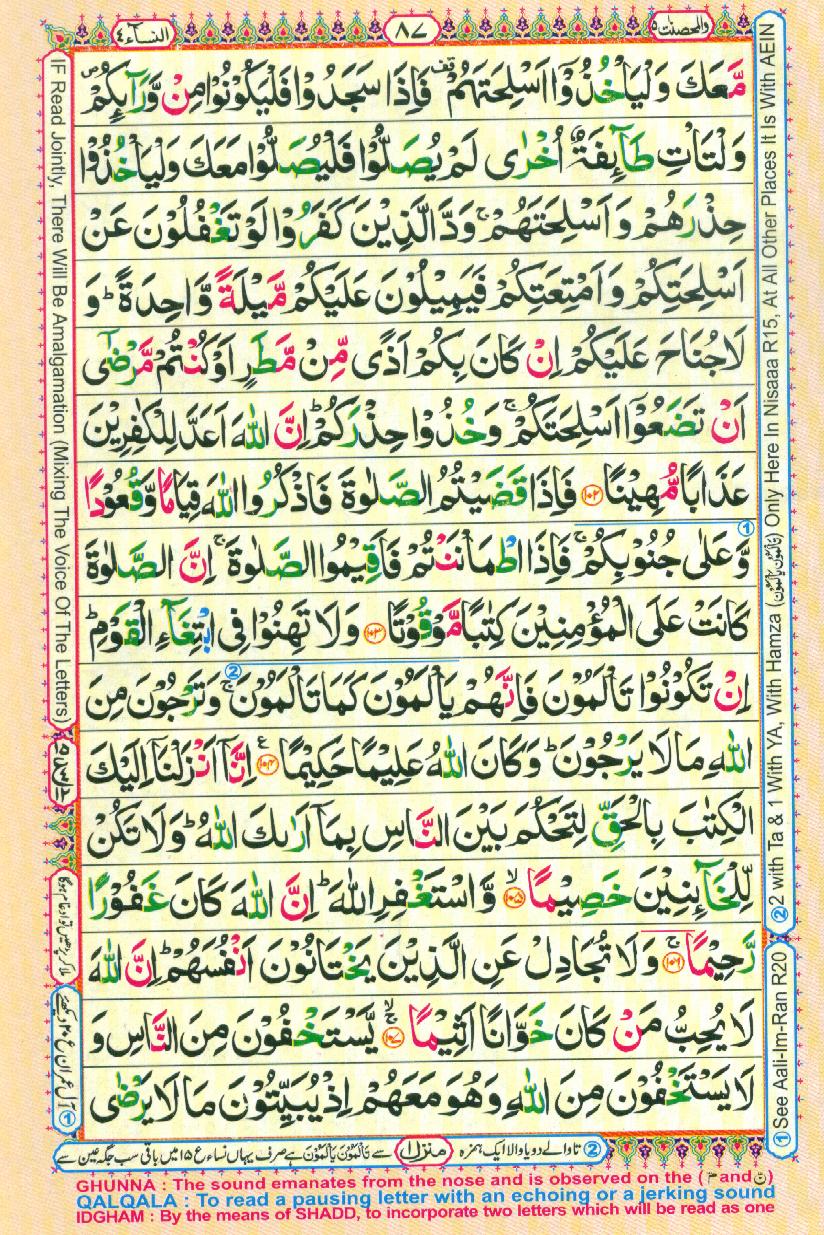 النسآء ٤
٨٧
والمحصنٰت ٥
مَّعَكَ وَلْيَاْخُذُوْۤا اَسْلِحَتَهُمْ ۫ فَاِذَا سَجَدُوْا فَلْيَكُوْنُوْا مِنْ وَّرَآىِٕكُمْ ۪
وَلْتَاْتِ طَآىِٕفَةٌ اُخْرٰى لَمْ يُصَلُّوْا فَلْيُصَلُّوْا مَعَكَ وَلْيَاْخُذُوْا
حِذْرَهُمْ وَاَسْلِحَتَهُمْ ۚ وَدَّ الَّذِيْنَ كَفَرُوْا لَوْ تَغْفُلُوْنَ عَنْ
اَسْلِحَتِكُمْ وَاَمْتِعَتِكُمْ فَيَمِيْلُوْنَ عَلَيْكُمْ مَّيْلَةً وَّاحِدَةً ؕ وَ
لَا جُنَاحَ عَلَيْكُمْ اِنْ كَانَ بِكُمْ اَذًى مِّنْ مَّطَرٍ اَوْ كُنْتُمْ مَّرْضٰۤى
اَنْ تَضَعُوْۤا اَسْلِحَتَكُمْ ۚ وَخُذُوْا حِذْرَكُمْ ؕ اِنَّ اللّٰهَ اَعَدَّ لِلْكٰفِرِيْنَ
عَذَابًا مُّهِيْنًا ١٠٢ فَاِذَا قَضَيْتُمُ الصَّلٰوةَ فَاذْكُرُوا اللّٰهَ قِيَامًا وَّقُعُوْدًا
وَّعَلٰى جُنُوْبِكُمْ ۚ فَاِذَا اطْمَاْنَنْتُمْ فَاَقِيْمُوا الصَّلٰوةَ ۚ اِنَّ الصَّلٰوةَ
كَانَتْ عَلَى الْمُؤْمِنِيْنَ كِتٰبًا مَّوْقُوْتًا ١٠٣ وَلَا تَهِنُوْا فِى ابْتِغَآءِ الْقَوْمِ ؕ
اِنْ تَكُوْنُوْا تَاْلَمُوْنَ فَاِنَّهُمْ يَاْلَمُوْنَ كَمَا تَاْلَمُوْنَ ۚ وَتَرْجُوْنَ مِنَ
اللّٰهِ مَا لَا يَرْجُوْنَ ؕ وَكَانَ اللّٰهُ عَلِيْمًا حَكِيْمًا ١٠٤ اِنَّاۤ اَنْزَلْنَاۤ اِلَيْكَ
الْكِتٰبَ بِالْحَقِّ لِتَحْكُمَ بَيْنَ النَّاسِ بِمَاۤ اَرٰىكَ اللّٰهُ ؕ وَلَا تَكُنْ
لِّلْخَآىِٕنِيْنَ خَصِيْمًا ١٠٥ ۙ وَّاسْتَغْفِرِ اللّٰهَ ؕ اِنَّ اللّٰهَ كَانَ غَفُوْرًا
رَّحِيْمًا ١٠٦ ۚ وَلَا تُجَادِلْ عَنِ الَّذِيْنَ يَخْتَانُوْنَ اَنْفُسَهُمْ ؕ اِنَّ اللّٰهَ
لَا يُحِبُّ مَنْ كَانَ خَوَّانًا اَثِيْمًا ١٠٧ ۙۚ يَّسْتَخْفُوْنَ مِنَ النَّاسِ وَ
لَا يَسْتَخْفُوْنَ مِنَ اللّٰهِ وَهُوَ مَعَهُمْ اِذْ يُبَيِّتُوْنَ مَا لَا يَرْضٰى
① See Aali-Im-Ran R20
② 2 with Ta & 1 With YA, With Hamza (تَأْلَمُوْنَ يَأْلَمُوْنَ) Only Here In Nisaaa R15, At All Other Places It Is With AEIN
IF Read Jointly, There Will Be Amalgamation (Mixing The Voice Of The Letters)
ملا کر پڑھیں تو ادغام ہوگا
① آل عمران ع ۲۰ دیکھئے
② تا والے دو یا والا ایک ہمزہ منزل ١ سے تَأْلَمُوْنَ يَأْلَمُوْنَ ہے صرف یہاں نساء ع ۱۵ میں باقی سب جگہ عین سے
GHUNNA : The sound emanates from the nose and is observed on the ( مّ and نّ )
QALQALA : To read a pausing letter with an echoing or a jerking sound
IDGHAM : By the means of SHADD, to incorporate two letters which will be read as one